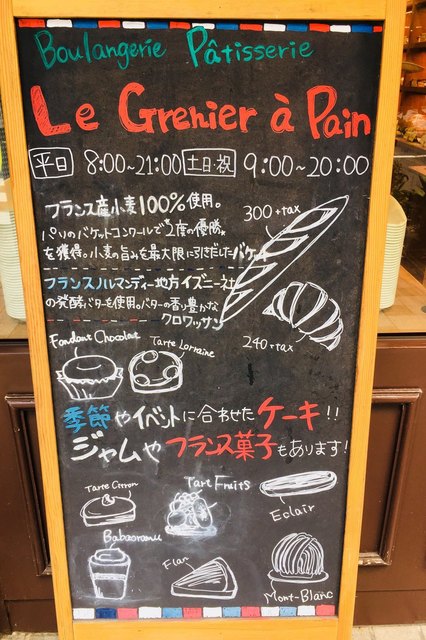 Boulangerie Pâtisserie
Le Grenier à Pain
平日 8:00~21:00 土日・祝 9:00~20:00
フランス産小麦100%使用。
パリのバケットコンクールで2度の優勝
を獲得。小麦の旨みを最大限に引きだしたバケット
300+tax
フランスノルマンディー地方イズニー社
の発酵バターを使用。バターの香り豊かな
クロワッサン
240+tax
Fondant Chocolat
Tarte Lorraine
季節やイベントに合わせたケーキ!!
ジャムやフランス菓子もあります!
Tarte Citron
Tart Fruits
Eclair
Babaoramu
Flan
Mont-Blanc